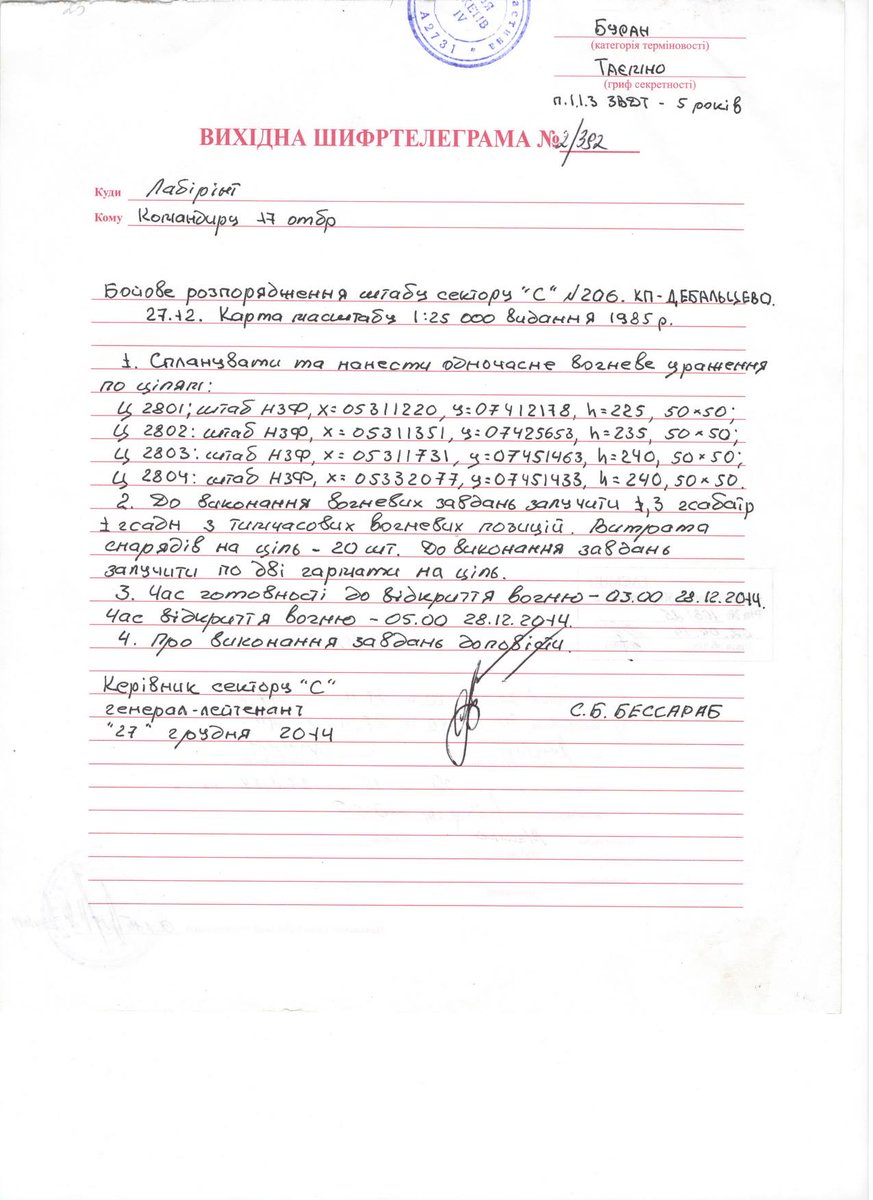 А2731
IV
БУРАН
(категорія терміновості)
ТАЄМНО
(гриф секретності)
п.1.1.3 ЗВДТ - 5 років
ВИХІДНА ШИФРТЕЛЕГРАМА № 2/392
Куди Лабірінт
Кому Командиру 17 отбр
Бойове розпорядження штабу сектору "С" №206. КП-ДЕБАЛЬЦЕВО.
27.12. Карта масштабу 1:25 000 видання 1985 р.
1. Спланувати та нанести одночасне вогневе ураження
по цілям:
Ц 2801; штаб НЗФ, х=05311220, у=07412178, h=225, 50×50;
Ц 2802: штаб НЗФ, х=05311351, у=07425653, h=235, 50×50;
Ц 2803: штаб НЗФ, х=05311731, у=07451463, h=240, 50×50;
Ц 2804: штаб НЗФ, х=05332077, у=07451433, h=240, 50×50.
2. До виконання вогневих завдань залучити 1,3 гсабатр
1 гсадн з тимчасових вогневих позицій. Витрата
снарядів на ціль - 20 шт. До виконання завдань
залучити по дві гармати на ціль.
3. Час готовності до відкриття вогню - 03.00 28.12.2014.
Час відкриття вогню - 05.00 28.12.2014.
4. Про виконання завдань доповісти.
Керівник сектору "С"
генерал-лейтенант С.Б. БЕССАРАБ
"27" грудня 2014